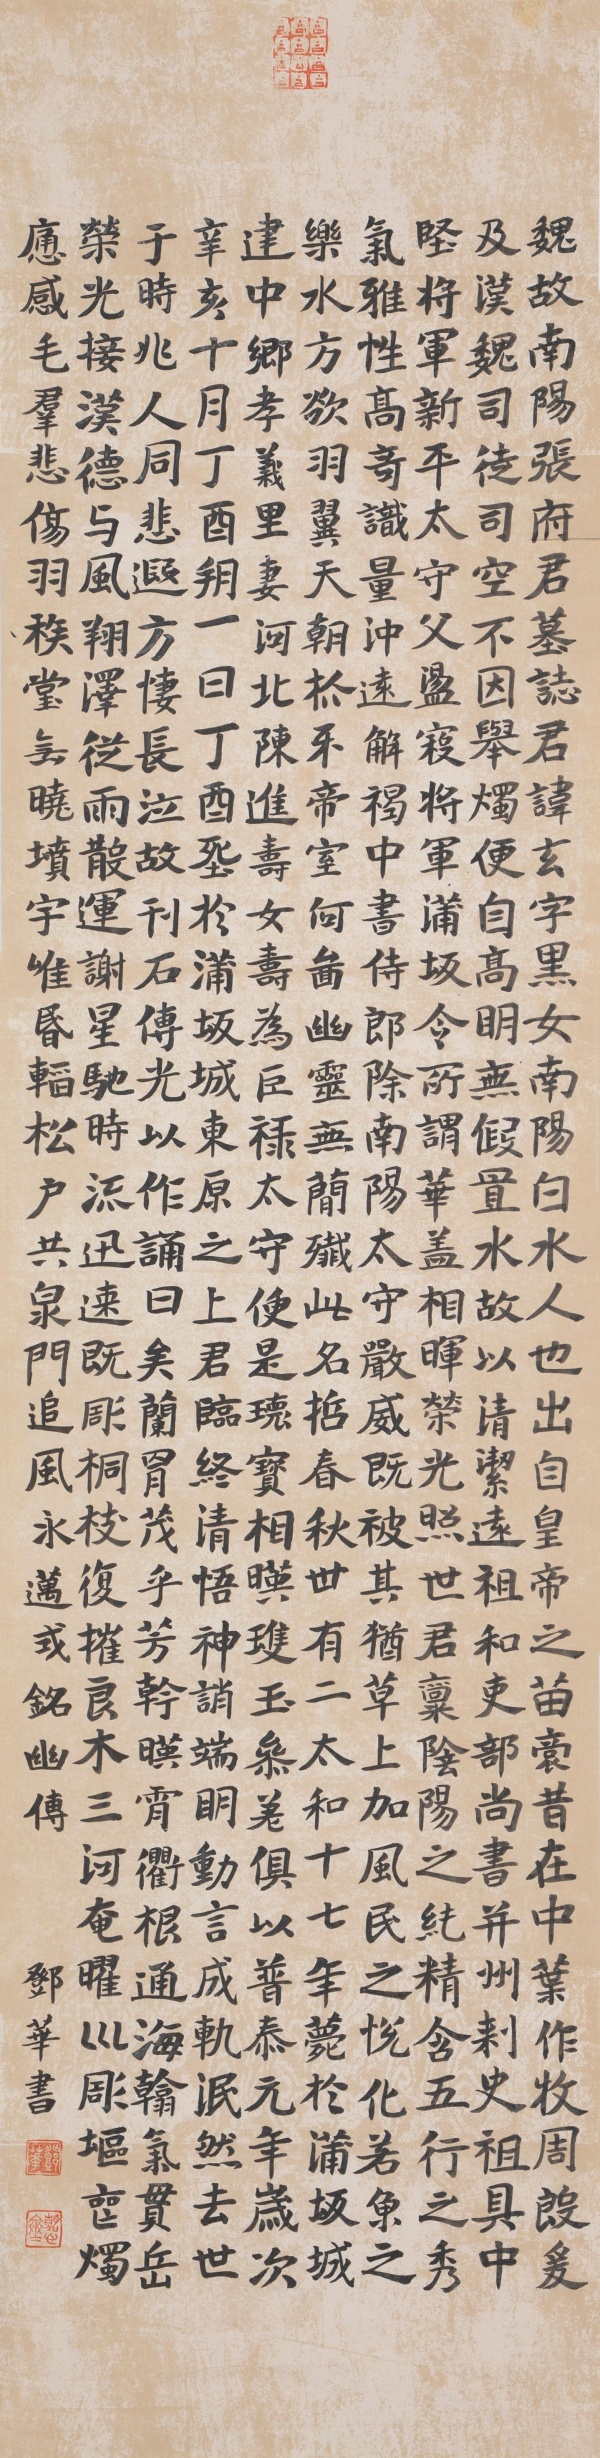 魏故南陽張府君墓誌君諱玄字黑女南陽白水人也出自皇帝之苗裔昔在中葉作牧周殷爰
及漢魏司徒司空不因舉燭便自高明無假置水故以清潔遠祖和吏部尚書并州刺史祖具中
堅将軍新平太守父盪寇将軍蒲坂令所謂華盖相暉榮光照世君稟陰陽之純精含五行之秀
氣雅性高奇識量沖遠解褐中書侍郎除南陽太守嚴威既被其猶草上加風民之悅化若魚之
樂水方欲羽翼天朝抓牙帝室何啚幽靈無簡殱此名哲春秋丗有二太和十七年薨於蒲坂城
建中鄉孝義里妻河北陳進壽女壽為巨祿太守便是瓌寶相暎瓊玉參差俱以普泰元年歲次
辛亥十月丁酉朔一日丁酉塟於蒲坂城東原之上君臨終清悟神誚端明動言成軌泯然去世
于時兆人同悲遐方悽長泣故刊石傳光以作誦曰矣蘭胄茂乎芳幹暎霄衢根通海翰氣貫岳
榮光接漢德与風翔澤從雨散運謝星馳時流迅速既彫桐枝復摧良木三河奄曜巛彫塸㐫燭
痛感毛羣悲傷羽稚堂無曉墳宇唯昏韜松户共泉門追風永邁或銘幽傳
鄧華書